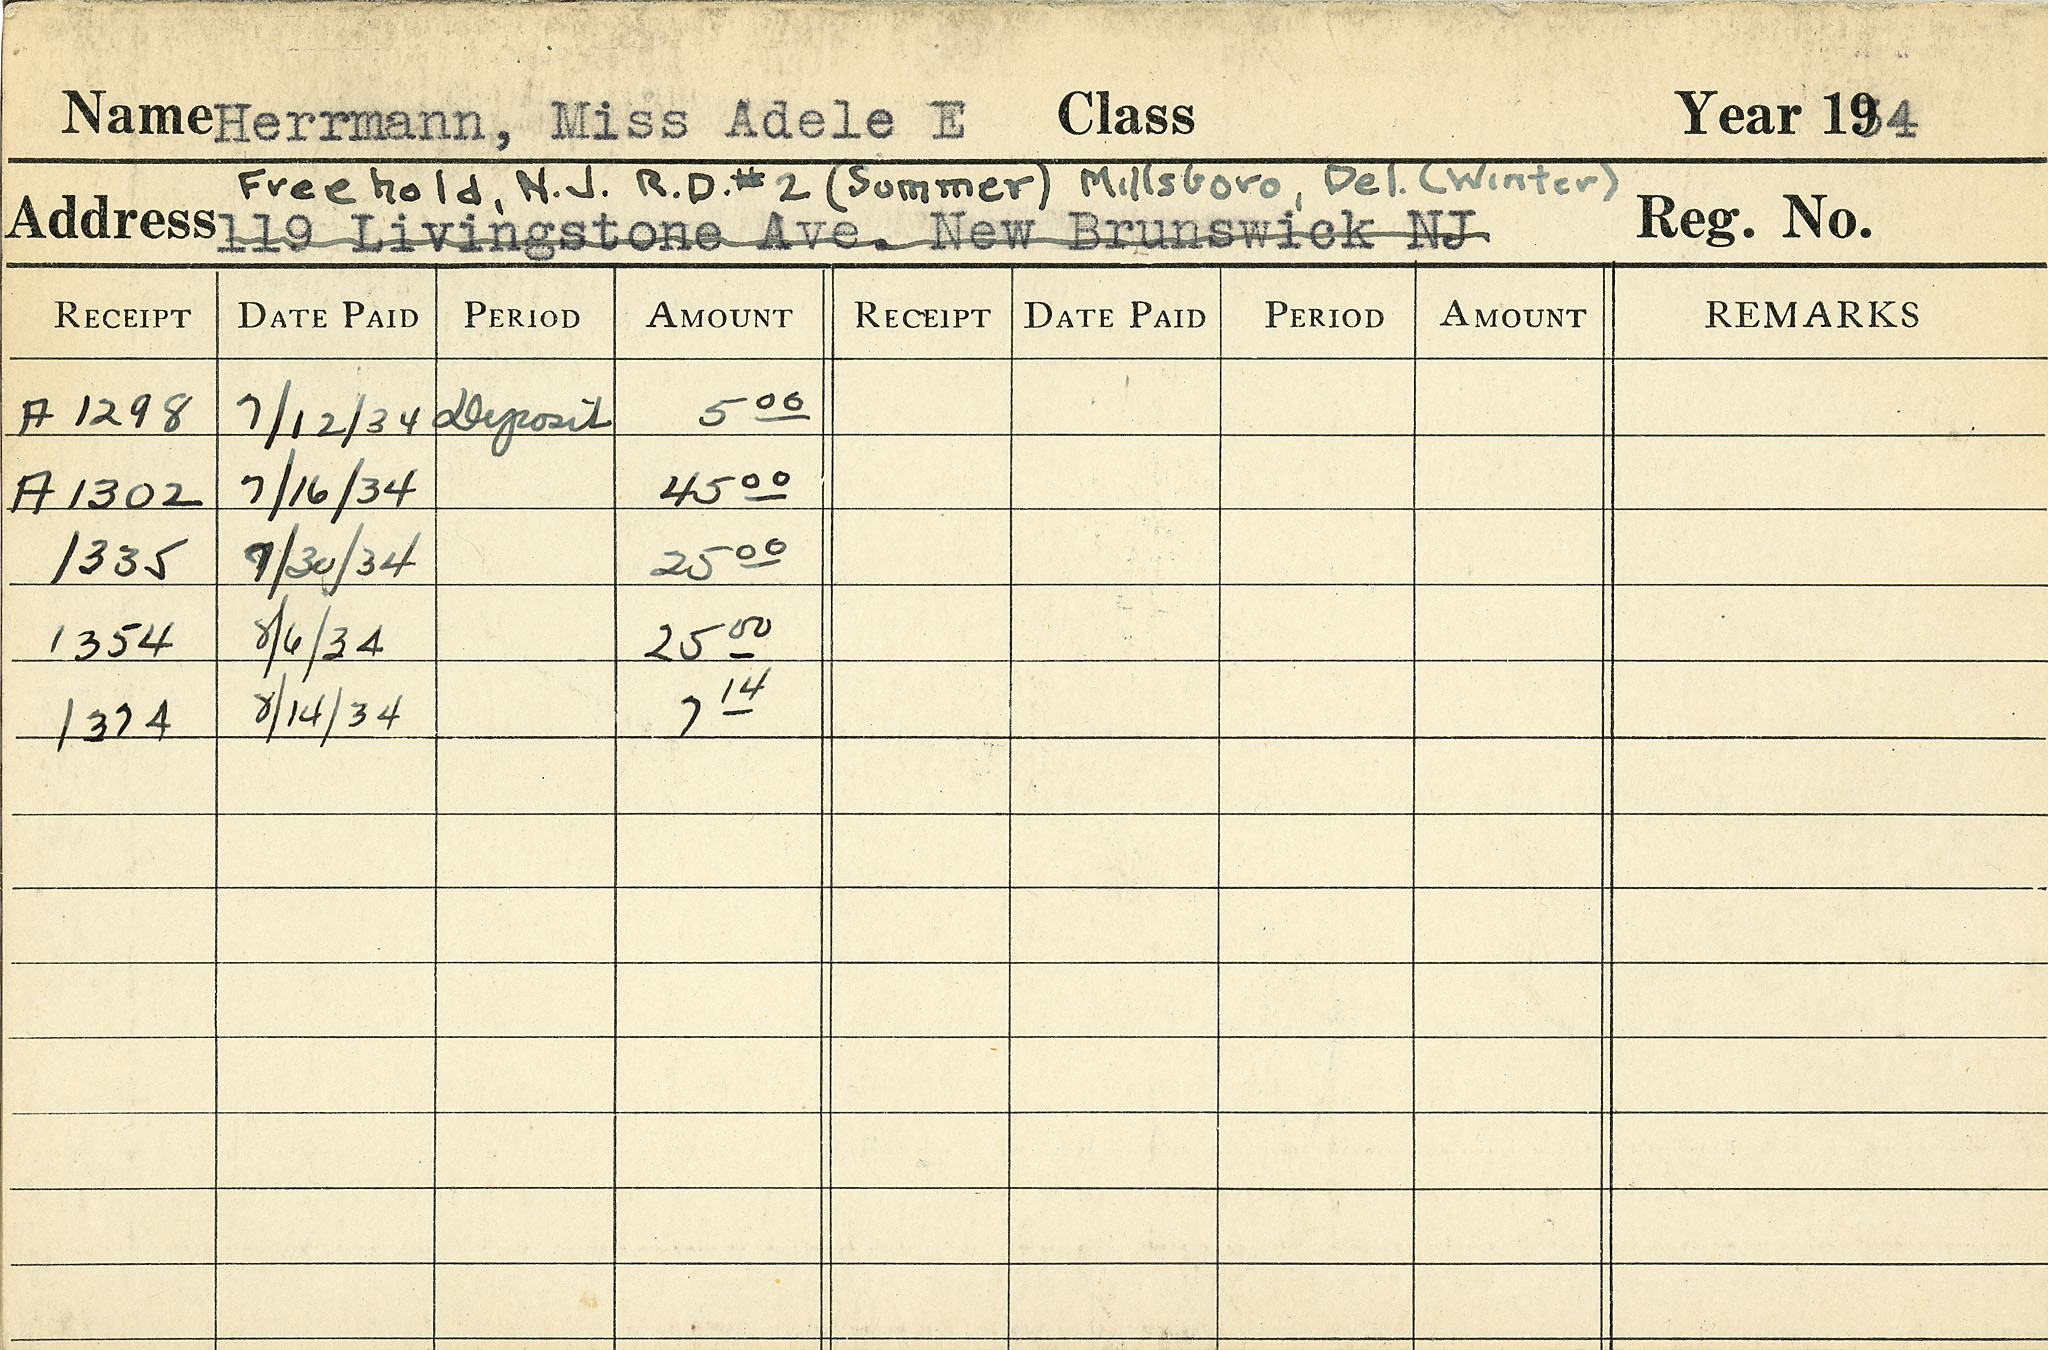 Name Herrmann, Miss Adele E Class Year 1934
Freehold, N.J. R.D.#2 (Summer) Millsboro, Del. (Winter)
Address 119 Livingstone Ave. New Brunswick NJ Reg. No.
RECEIPT DATE PAID PERIOD AMOUNT RECEIPT DATE PAID PERIOD AMOUNT REMARKS
A 1298 7/12/34 Deposit 5 00
A 1302 7/16/34 45 00
1335 7/30/34 25 00
1354 8/6/34 25 00
1374 8/14/34 7 14